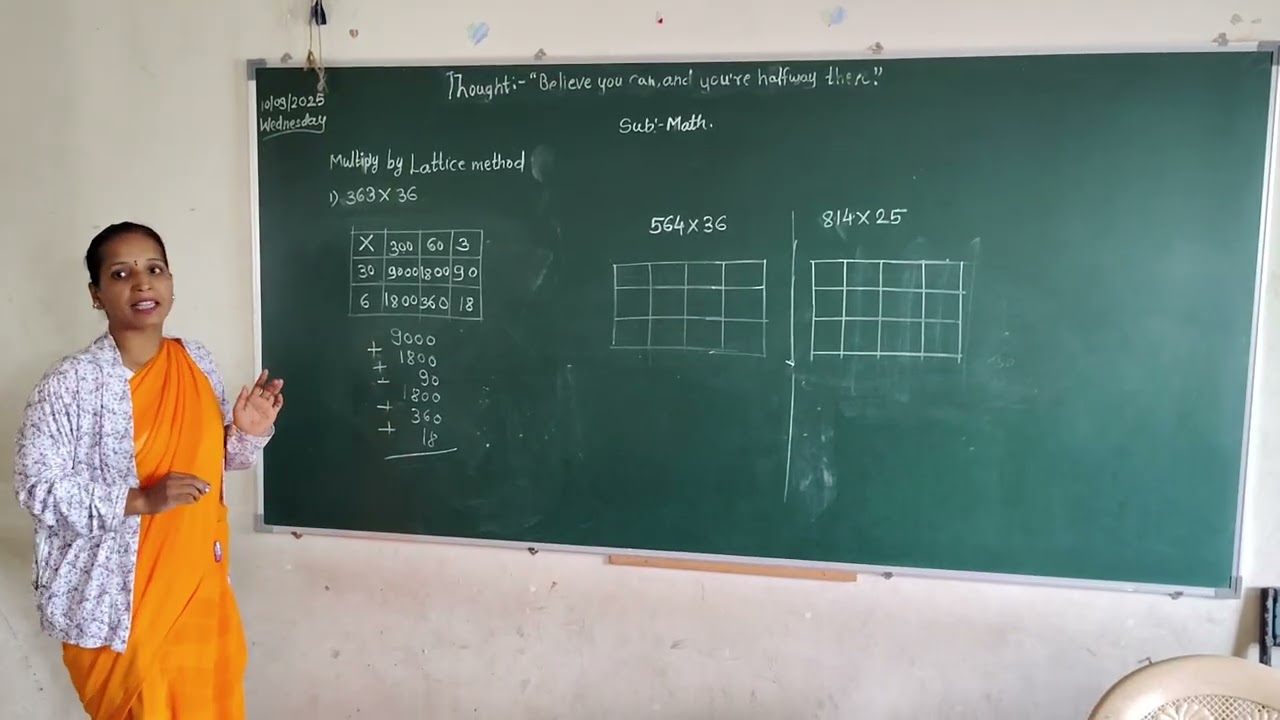 Thought:- "Believe you can, and you're halfway then."
10/09/2025
Wednesday
Sub:- Math.
Multiply by Lattice method
1) 363 X 36
X 300 60 3
30 9000 1800 90
6 1800 360 18
9000
+ 1800
+ 90
+ 1800
+ 360
+ 18
564 X 36
814 X 25